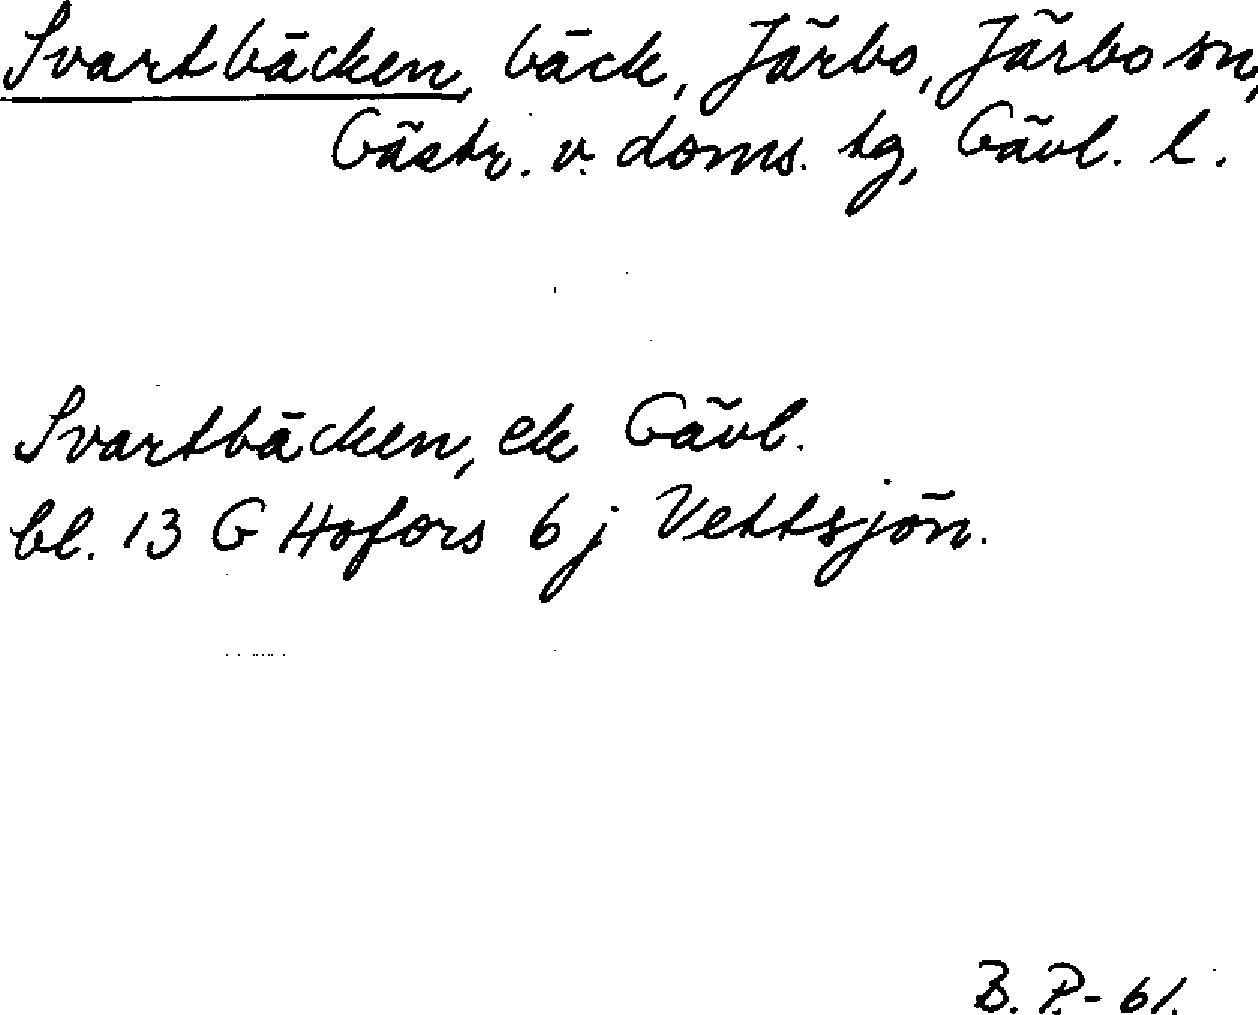 Svartbäcken, bäck, Järbo, Järbo sn,
Gästr. v. doms. tg, Gävl. l.
Svartbäcken, ek Gävl.
bl. 13 G Hofors 6 j Vettsjön.
B. P.-61.